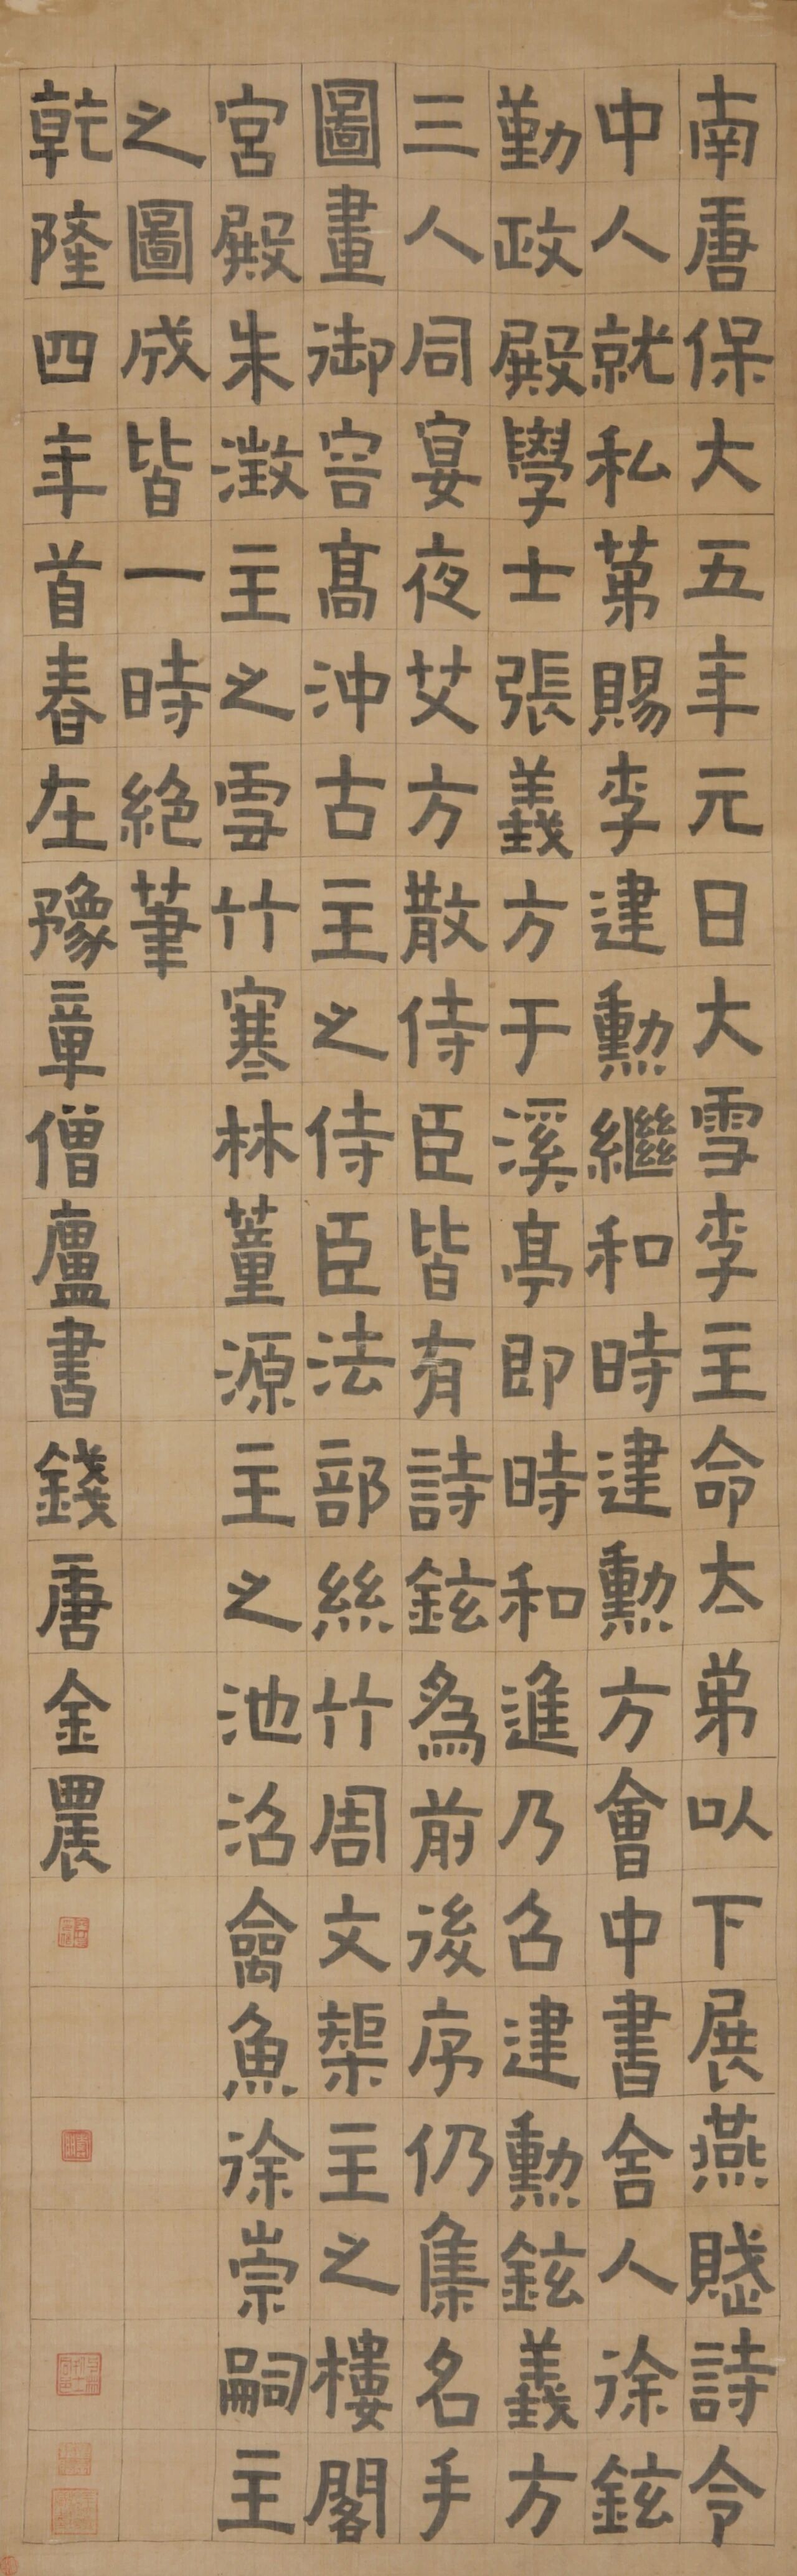 南唐保大五年元日大雪李主命太弟以下展燕賦詩令
中人就私第賜李建勳繼和時建勳方會中書舍人徐鉉
勤政殿學士張義方于溪亭即時和進乃召建勳鉉義方
三人同宴夜艾方散侍臣皆有詩鉉為前後序仍集名手
圖畫御容高沖古主之侍臣法部絲竹周文榘主之樓閣
宮殿朱澂主之雪竹寒林董源主之池沼禽魚徐崇嗣主
之圖成皆一時絶筆
乾隆四年首春在豫章僧廬書錢唐金農